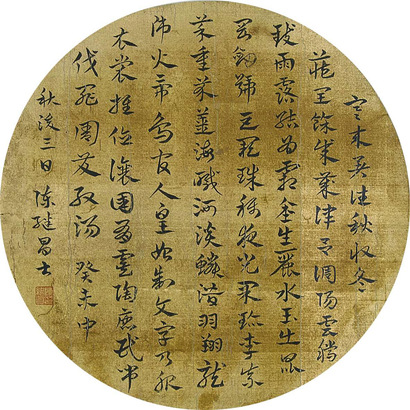 寒來暑往秋收冬
藏閏餘成歲律呂調陽雲騰
致雨露結為霜金生麗水玉出崑
岡劍號巨闕珠稱夜光果珍李柰
菜重芥薑海鹹河淡鱗潛羽翔龍
師火帝鳥官人皇始制文字乃服
衣裳推位讓國有虞陶唐民弔
伐罪周發殷湯 癸未中
秋後三日 陳繼昌書